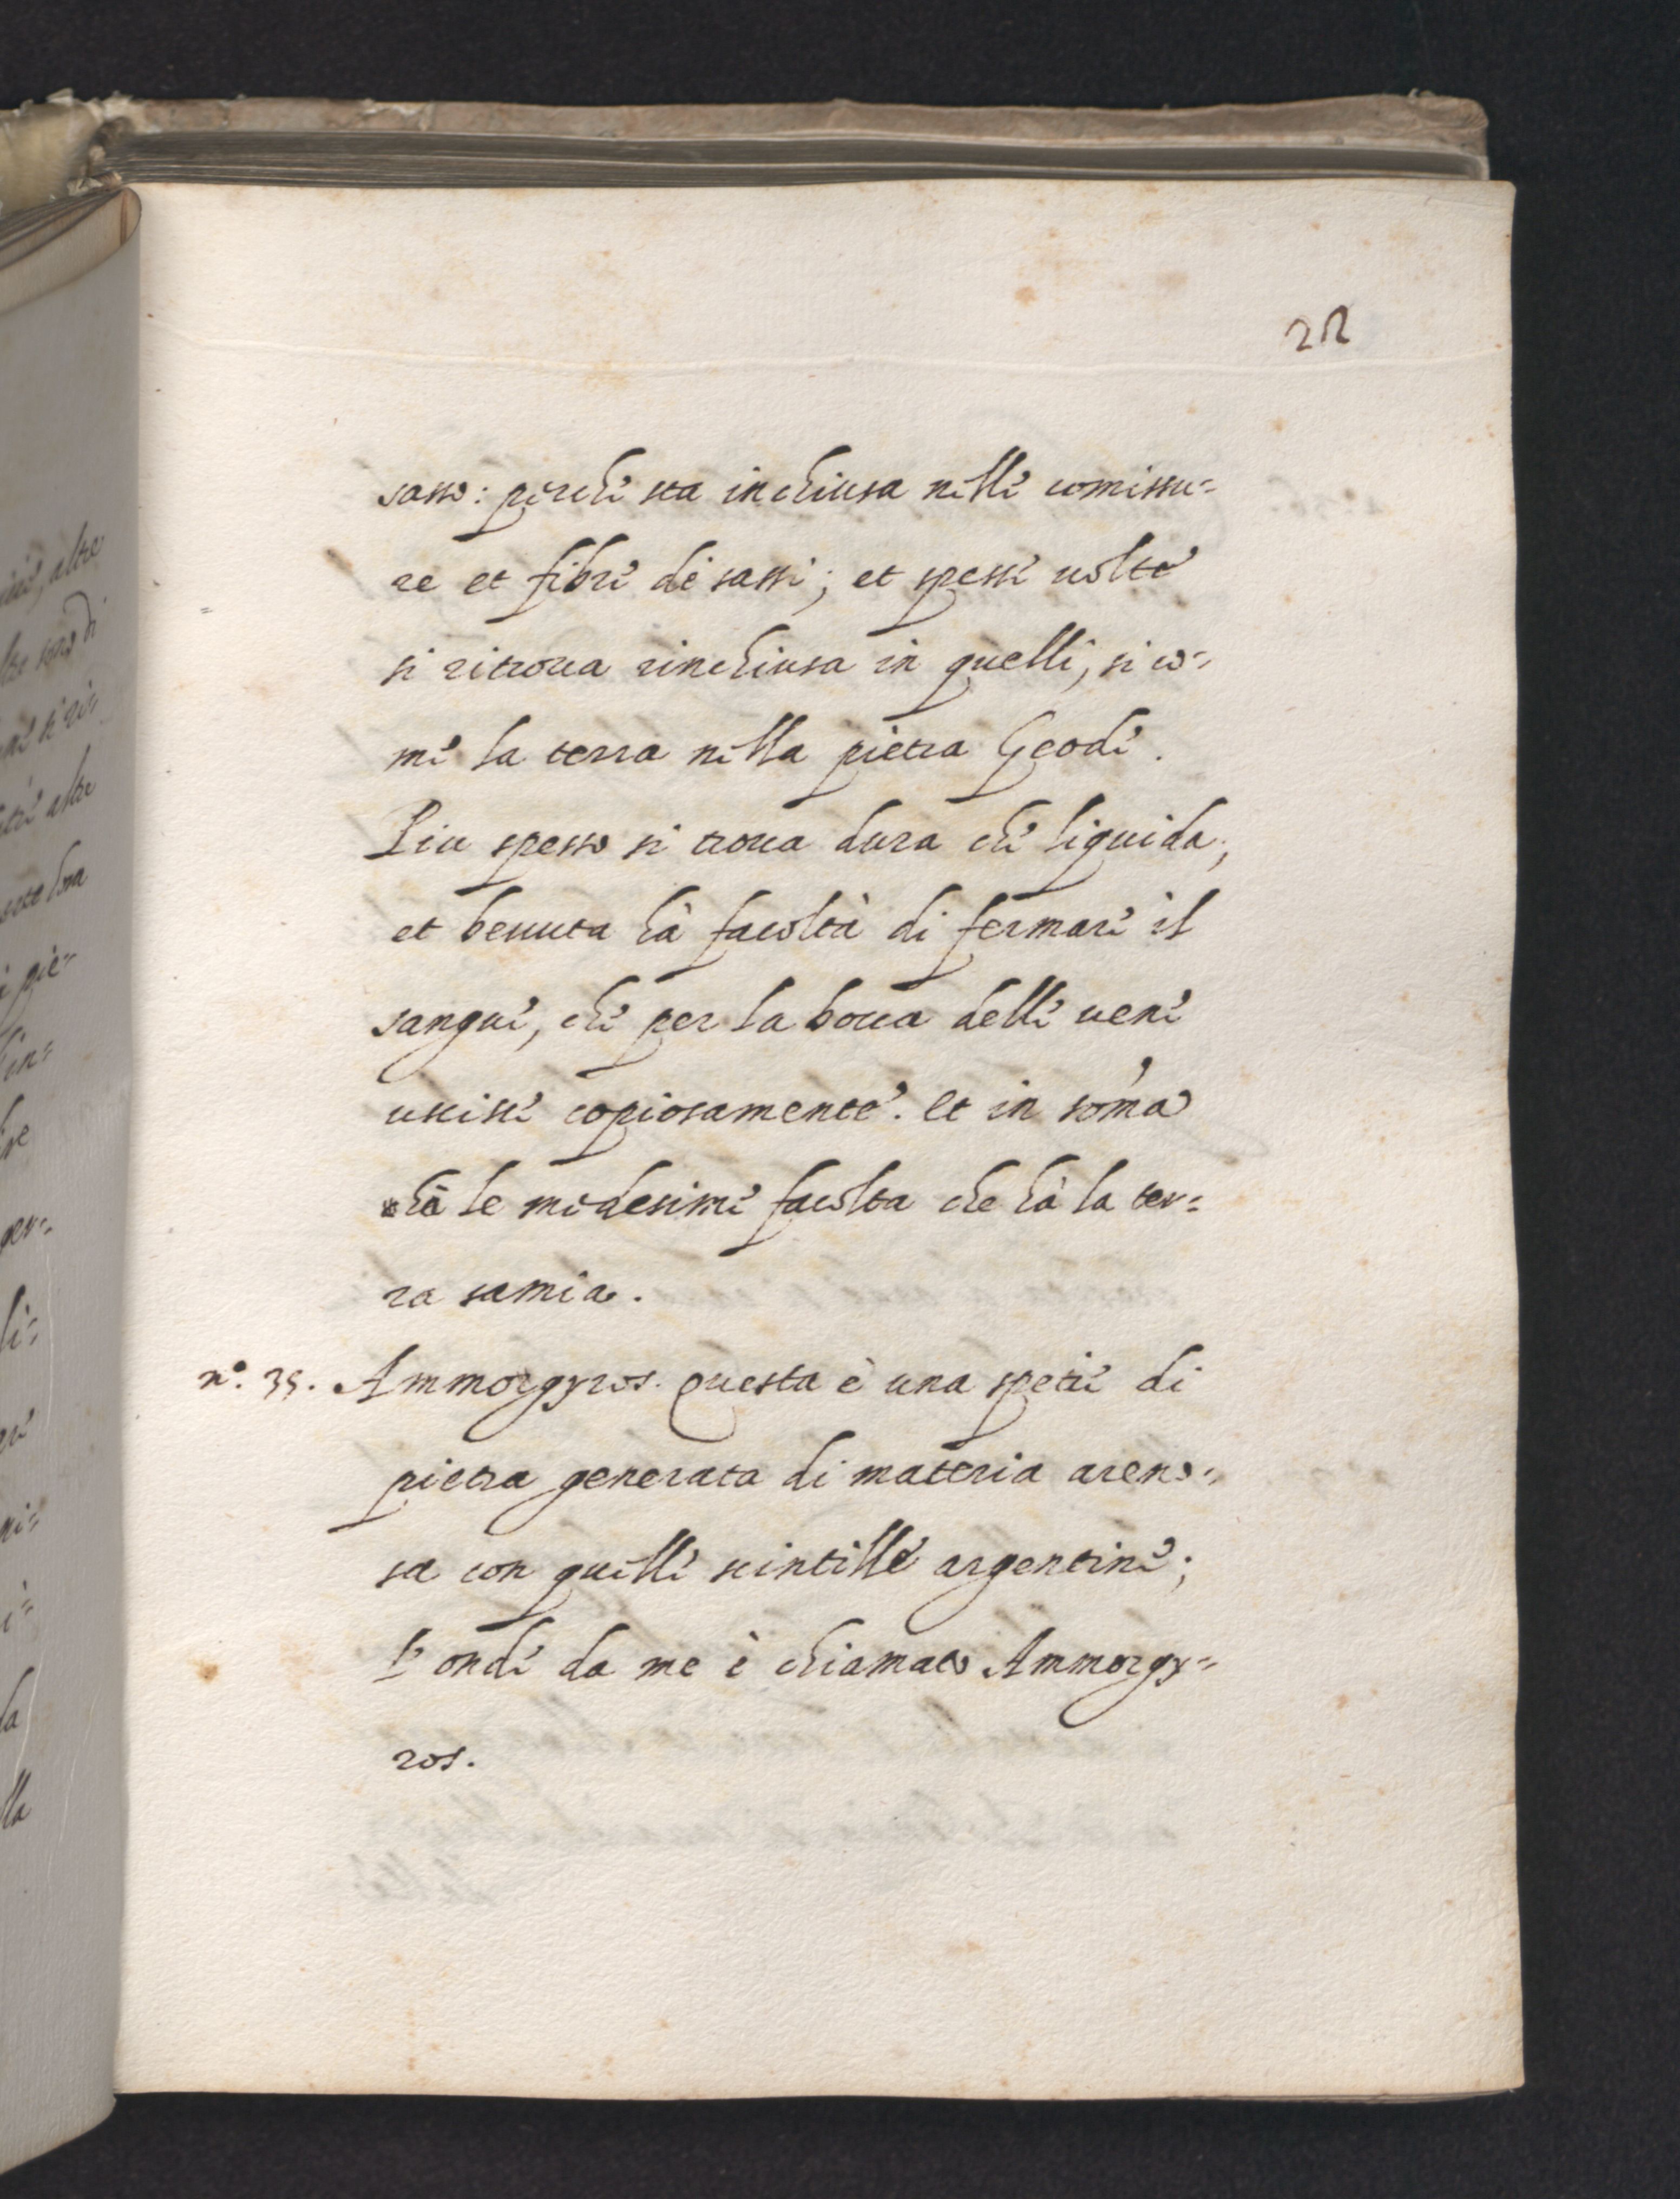 22
sasso: perche sta inchiusa nelle comissu=
re et fibre de sassi; et spesse uolte
si ritroua rinchiusa in quelli, si co=
me la terra nella pietra Geode.
Piu spesso si troua dura che liquida;
et beuuta hà facoltà di fermare il
sangue, che per la bocca delle uene
uscisse copiosamente. et in som̃a
hà le medesime facolta che hà la ter=
ra samia.
n.° 35. Ammorgyros. questa è una spetie di
pietra generata di materia areno=
sa con quelle scintille argentine;
L'onde da me è chiamato Ammorgy=
ros.